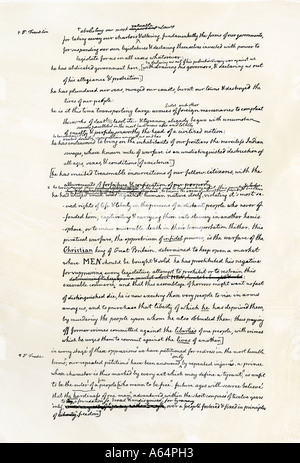 * D^r. Franklin
* abolishing our most valuable laws
for taking away our charters, & altering fundamentally the forms of our governments,
for suspending our own legislatures & declaring themselves invested with power to
legislate for us in all cases whatsoever
he has abdicated government here, withdrawing his governors, & declaring us out
of his allegiance & protection
he has plundered our seas, ravaged our coasts, burnt our towns & destroyed the
lives of our people
he is at this time transporting large armies of foreign mercenaries to compleat
Scotch and other
the works of death, desolation & tyranny already begun with circumstances
of cruelty & perfidy unworthy the head of a civilized nation
he has endeavored to bring on the inhabitants of our frontiers the merciless Indian
savages, whose known rule of warfare is an undistinguished destruction of
all ages, sexes, & conditions of existence
he has incited treasonable insurrections of our fellow-citizens, with the
allurements of forfeiture & confiscation of our property
he has waged cruel war against human nature itself, violating it's most sa-
-cred rights of life & liberty in the persons of a distant people who never of-
fended him, captivating & carrying them into slavery in another hemis-
-phere, or to incur miserable death in their transportation thither. this
piratical warfare, the opprobrium of infidel powers, is the warfare of the
Christian king of Great Britain. determined to keep open a market
where MEN should be bought & sold he has prostituted his negative
for suppressing every legislative attempt to prohibit or to restrain this
execrable commerce: and that this assemblage of horrors might want no fact
of distinguished die, he is now exciting those very people to rise in arms
among us, and to purchase that liberty of which he has deprived them,
by murdering the people upon whom he also obtruded them: thus paying
off former crimes committed against the liberties of one people, with crimes
which he urges them to commit against the lives of another.
in every stage of these oppressions we have petitioned for redress in the most humble
terms; our repeated petitions have been answered only by repeated injuries. a prince
* D^r. Franklin
whose character is thus marked by every act which may define a tyrant, is unfit
to be the ruler of a people who mean to be free. future ages will scarce believe
that the hardiness of one man, adventured within the short compass of twelve years
over a people fostered & fixed in principles
of freedom
alamy
Image ID: A64PH3
www.alamy.com